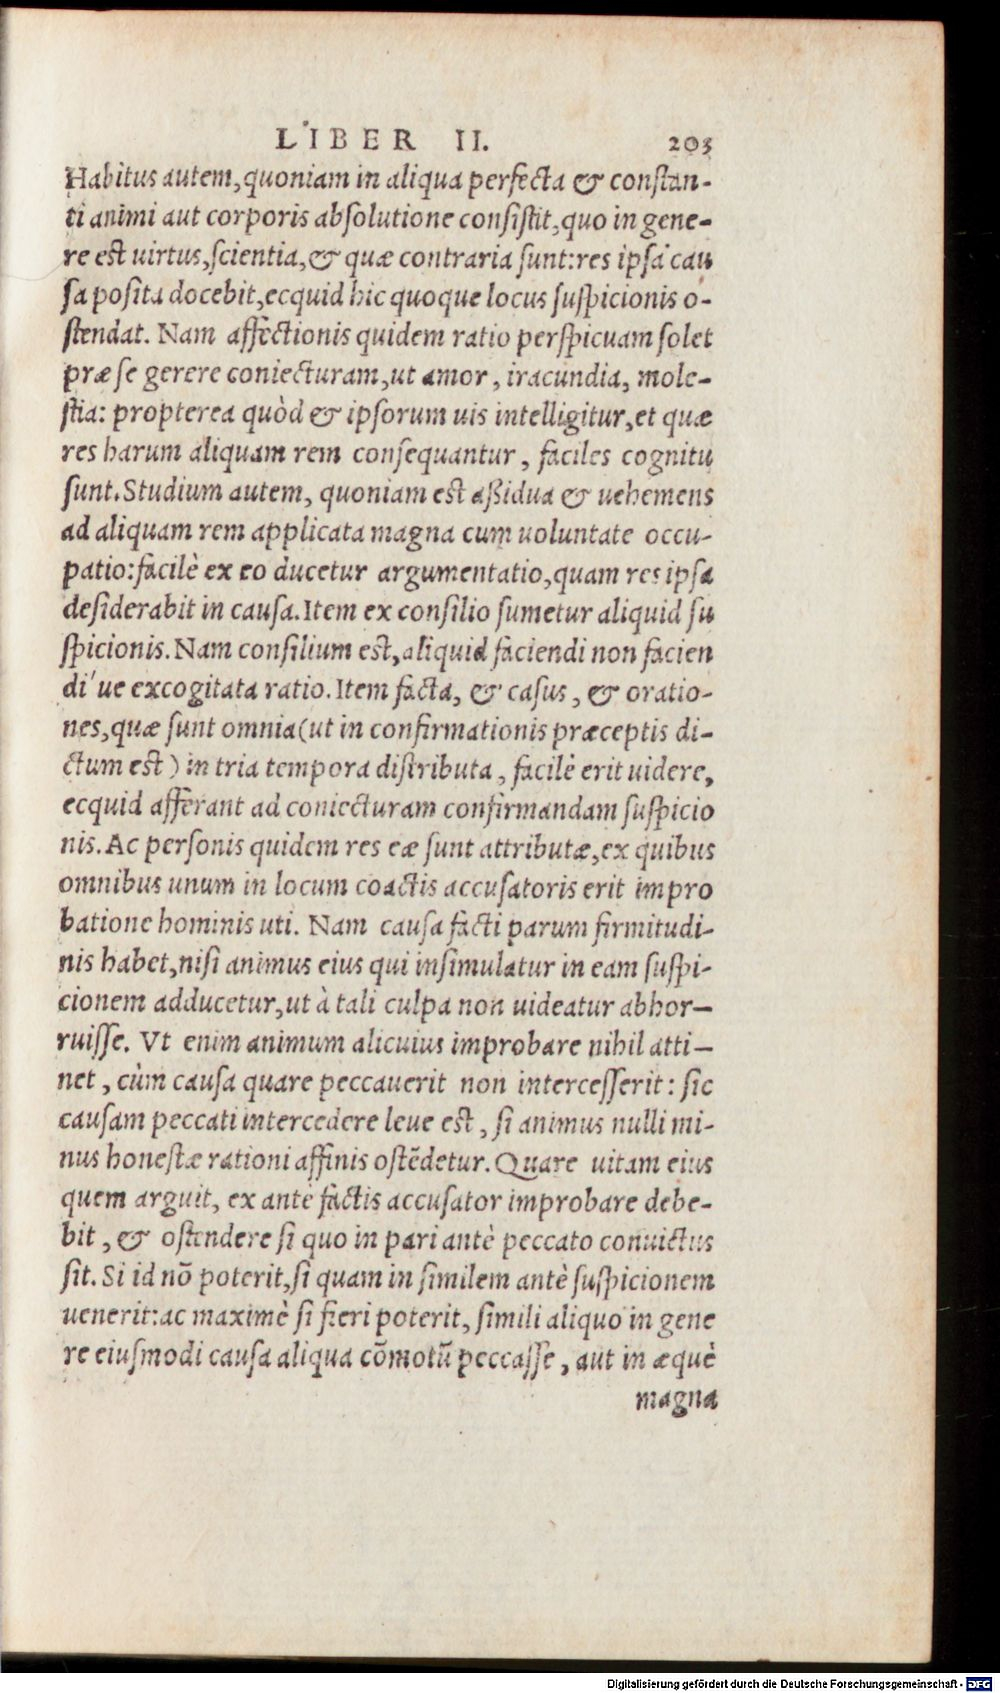 LIBER II. 203
Habitus autem, quoniam in aliqua perfecta & constan-
ti animi aut corporis absolutione consistit, quo in gene-
re est uirtus, scientia, & quæ contraria sunt: res ipsa cau
sa posita docebit, ecquid hic quoque locus suspicionis o-
stendat. Nam affectionis quidem ratio perspicuam solet
præ se gerere coniecturam, ut amor, iracundia, mole-
stia: propterea quòd & ipsorum uis intelligitur, et quæ
res harum aliquam rem consequantur, faciles cognitu
sunt. Studium autem, quoniam est aßidua & uehemens
ad aliquam rem applicata magna cum uoluntate occu-
patio: facilè ex eo ducetur argumentatio, quam res ipsa
desiderabit in causa. Item ex consilio sumetur aliquid su
spicionis. Nam consilium est, aliquid faciendi non facien
di'ue excogitata ratio. Item facta, & casus, & oratio-
nes, quæ sunt omnia (ut in confirmationis præceptis di-
ctum est) in tria tempora distributa, facilè erit uidere,
ecquid afferant ad coniecturam confirmandam suspicio
nis. Ac personis quidem res eæ sunt attributæ, ex quibus
omnibus unum in locum coactis accusatoris erit impro
batione hominis uti. Nam causa facti parum firmitudi-
nis habet, nisi animus eius qui insimulatur in eam suspi-
cionem adducetur, ut à tali culpa non uideatur abhor-
ruisse. Vt enim animum alicuius improbare nihil atti-
net, cùm causa quare peccauerit non intercesserit: sic
causam peccati intercedere leue est, si animus nulli mi-
nus honestæ rationi affinis ostēdetur. Quare uitam eius
quem arguit, ex antè factis accusator improbare debe-
bit, & ostendere si quo in pari antè peccato conuictus
sit. Si id nō poterit, si quam in similem antè suspicionem
uenerit: ac maximè si fieri poterit, simili aliquo in gene
re eiusmodi causa aliqua cōmotū peccasse, aut in æquè
magna
Digitalisierung gefördert durch die Deutsche Forschungsgemeinschaft - DFG